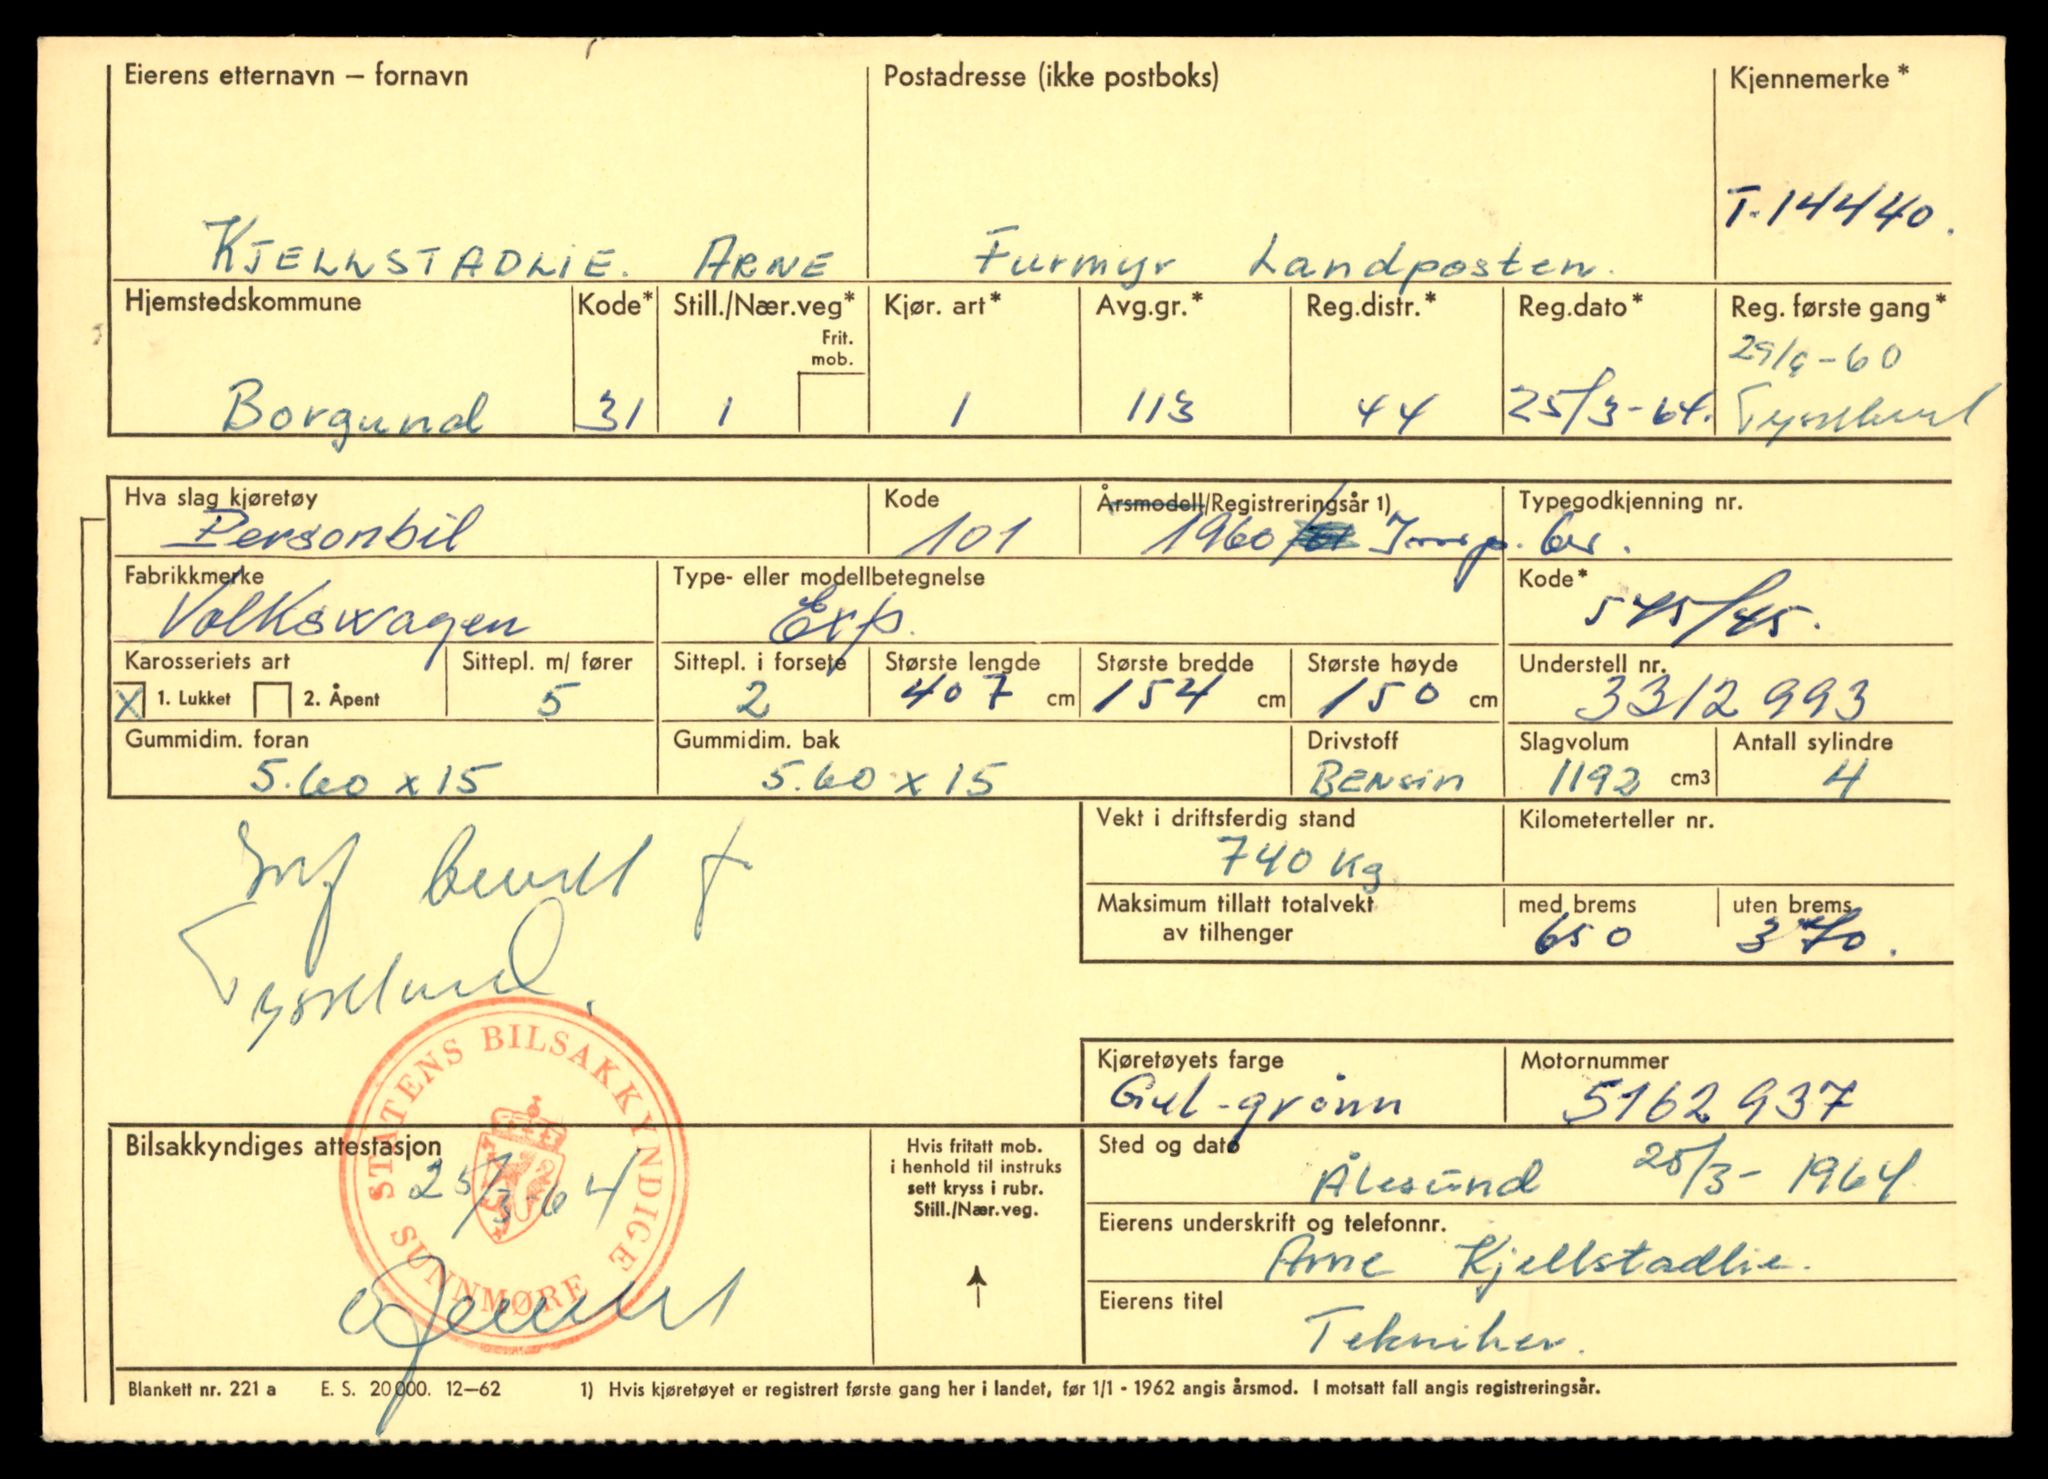 Eierens etternavn – fornavn Postadresse (ikke postboks) Kjennemerke*
T.14440.
KJELLSTADLIE. ARNE Furmyr Landposten.
Hjemstedskommune Kode* Still./Nær.veg* Kjør. art* Avg.gr.* Reg.distr.* Reg.dato* Reg. første gang*
Frit.
mob.
29/9-60
Borgund 31 1 1 113 44 25/3-64. Tyskland
Hva slag kjøretøy Kode Årsmodell/Registreringsår 1) Typegodkjenning nr.
Personbil 101 1960/ Imp.
Fabrikkmerke Type- eller modellbetegnelse Kode*
Volkswagen Exp. 545/45.
Karosseriets art Sittepl. m/ fører Sittepl. i forsete Største lengde Største bredde Største høyde Understell nr.
X 1. Lukket 2. Åpent 5 2 407 cm 154 cm 150 cm 3312993
Gummidim. foran Gummidim. bak Drivstoff Slagvolum Antall sylindre
5.60 x 15 5.60 x 15 BENSIN 1192 cm3 4
Vekt i driftsferdig stand Kilometerteller nr.
740 Kg
Maksimum tillatt totalvekt med brems uten brems
av tilhenger 650 370.
Tyskland.
Kjøretøyets farge Motornummer
Gul-grønn 5162937
STATENS BILSAKKYNDIGE SUNNMØRE
Bilsakkyndiges attestasjon
25/3-64
Hvis fritatt mob.
i henhold til instruks
sett kryss i rubr.
Still./Nær.veg.
Sted og dato
Ålesund 25/3-1964.
Eierens underskrift og telefonnr.
Arne Kjellstadlie.
Eierens titel
Tekniker.
Blankett nr. 221 a E. S. 20000. 12–62 1) Hvis kjøretøyet er registrert første gang her i landet, før 1/1 - 1962 angis årsmod. I motsatt fall angis registreringsår.